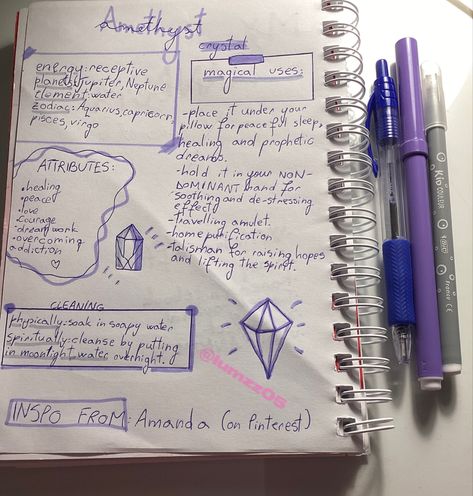 Amethyst
crystal
energy: receptive
planets: Jupiter, Neptune
Element: water
zodiac: Aquarius, capricorn,
pisces, virgo
magical uses:
-place it under your
pillow for peaceful sleep,
healing and prophetic
dreams.
-hold it in your NON-
DOMINANT hand for
soothing and de-stressing
effect
-travelling amulet.
-home purification
-talisman for raising hopes
and lifting the spirit.
ATTRIBUTES:
•healing
•peace
•love
•courage
•dream work
•overcoming
addiction
CLEANING
physically-soak in soapy water
spiritually-cleanse by putting
in moonlight water overnight.
@lumzz05
INSPO FROM: Amanda (on Pinterest)
Kio COLOUR